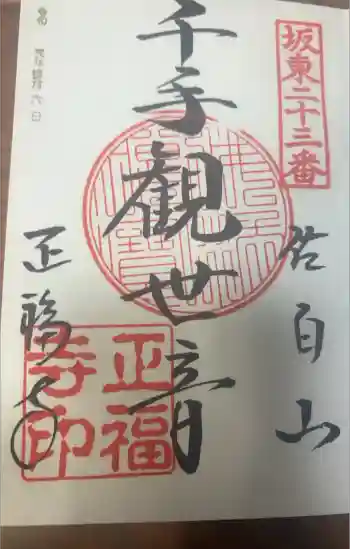 坂東二十三番
佐白山
千手観世音
正福寺
正福
寺印